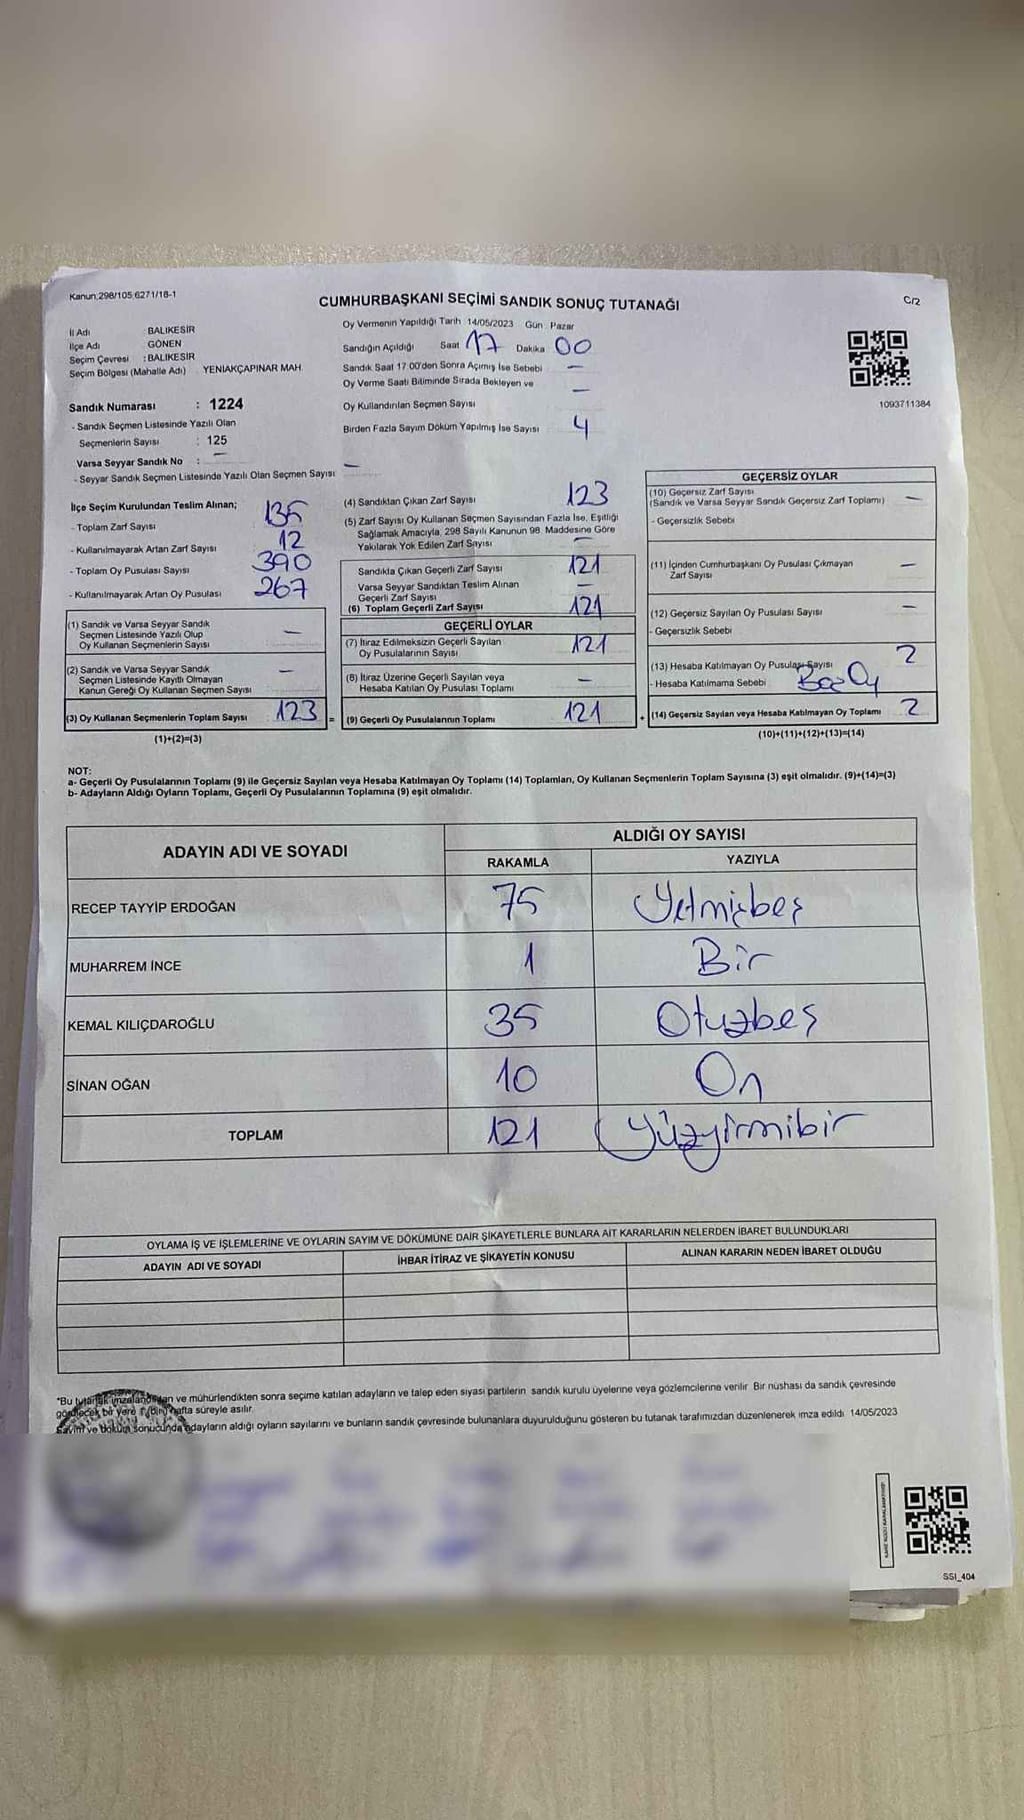 Kanun:298/105 6271/18-1
C/2
CUMHURBAŞKANI SEÇİMİ SANDIK SONUÇ TUTANAĞI
İl Adı : BALIKESİR
İlçe Adı : GÖNEN
Seçim Çevresi : BALIKESİR
Seçim Bölgesi (Mahalle Adı) : YENİAKÇAPINAR MAH.
Sandık Numarası : 1224
- Sandık Seçmen Listesinde Yazılı Olan
Seçmenlerin Sayısı : 125
Varsa Seyyar Sandık No : —
- Seyyar Sandık Seçmen Listesinde Yazılı Olan Seçmen Sayısı : —
Oy Vermenin Yapıldığı Tarih : 14/05/2023 Gün : Pazar
Sandığın Açıldığı Saat 17 Dakika 00
Sandık Saat 17.00'den Sonra Açımış İse Sebebi —
Oy Verme Saati Bitiminde Sırada Bekleyen ve
Oy Kullandırılan Seçmen Sayısı —
Birden Fazla Sayım Döküm Yapılmış İse Sayısı 4
1093711384
İlçe Seçim Kurulundan Teslim Alınan;
- Toplam Zarf Sayısı 135
- Kullanılmayarak Artan Zarf Sayısı 12
- Toplam Oy Pusulası Sayısı 390
- Kullanılmayarak Artan Oy Pusulası 267
(1) Sandık ve Varsa Seyyar Sandık
Seçmen Listesinde Yazılı Olup
Oy Kullanan Seçmenlerin Sayısı —
(2) Sandık ve Varsa Seyyar Sandık
Seçmen Listesinde Kayıtlı Olmayan
Kanun Gereği Oy Kullanan Seçmen Sayısı —
(3) Oy Kullanan Seçmenlerin Toplam Sayısı 123 =
(1)+(2)=(3)
(4) Sandıktan Çıkan Zarf Sayısı 123
(5) Zarf Sayısı Oy Kullanan Seçmen Sayısından Fazla İse, Eşitliği
Sağlamak Amacıyla, 298 Sayılı Kanunun 98. Maddesine Göre
Yakılarak Yok Edilen Zarf Sayısı —
Sandıkla Çıkan Geçerli Zarf Sayısı 121
Varsa Seyyar Sandıktan Teslim Alınan
Geçerli Zarf Sayısı —
(6) Toplam Geçerli Zarf Sayısı 121
GEÇERLİ OYLAR
(7) İtiraz Edilmeksizin Geçerli Sayılan
Oy Pusulalarının Sayısı 121
(8) İtiraz Üzerine Geçerli Sayılan veya
Hesaba Katılan Oy Pusulası Toplamı —
(9) Geçerli Oy Pusulalarının Toplamı 121 +
GEÇERSİZ OYLAR
(10) Geçersiz Zarf Sayısı
(Sandık ve Varsa Seyyar Sandık Geçersiz Zarf Toplamı) —
- Geçersizlik Sebebi
(11) İçinden Cumhurbaşkanı Oy Pusulası Çıkmayan
Zarf Sayısı —
(12) Geçersiz Sayılan Oy Pusulası Sayısı —
- Geçersizlik Sebebi
(13) Hesaba Katılmayan Oy Pusulası Sayısı 2
- Hesaba Katılmama Sebebi Boş Oy
(14) Geçersiz Sayılan veya Hesaba Katılmayan Oy Toplamı 2
(10)+(11)+(12)+(13)=(14)
NOT:
a- Geçerli Oy Pusulalarının Toplamı (9) ile Geçersiz Sayılan veya Hesaba Katılmayan Oy Toplamı (14) Toplamları, Oy Kullanan Seçmenlerin Toplam Sayısına (3) eşit olmalıdır. (9)+(14)=(3)
b- Adayların Aldığı Oyların Toplamı, Geçerli Oy Pusulalarının Toplamına (9) eşit olmalıdır.
ADAYIN ADI VE SOYADI ALDIĞI OY SAYISI
RAKAMLA YAZIYLA
RECEP TAYYİP ERDOĞAN 75 Yetmişbeş
MUHARREM İNCE 1 Bir
KEMAL KILIÇDAROĞLU 35 Otuzbeş
SİNAN OĞAN 10 On
TOPLAM 121 Yüzyirmibir
OYLAMA İŞ VE İŞLEMLERİNE VE OYLARIN SAYIM VE DÖKÜMÜNE DAİR ŞİKAYETLERLE BUNLARA AİT KARARLARIN NELERDEN İBARET BULUNDUKLARI
ADAYIN ADI VE SOYADI İHBAR İTİRAZ VE ŞİKAYETİN KONUSU ALINAN KARARIN NEDEN İBARET OLDUĞU
*Bu tutanak imzalandıktan ve mühürlendikten sonra seçime katılan adayların ve talep eden siyasi partilerin sandık kurulu üyelerine veya gözlemcilerine verilir. Bir nüshası da sandık çevresinde
görülecek bir yere 1 (bir) hafta süreyle asılır.
Sayım ve döküm sonucunda adayların aldığı oyların sayılarını ve bunların sandık çevresinde bulunanlara duyurulduğunu gösteren bu tutanak tarafımızdan düzenlenerek imza edildi. 14/05/2023
SSI_404